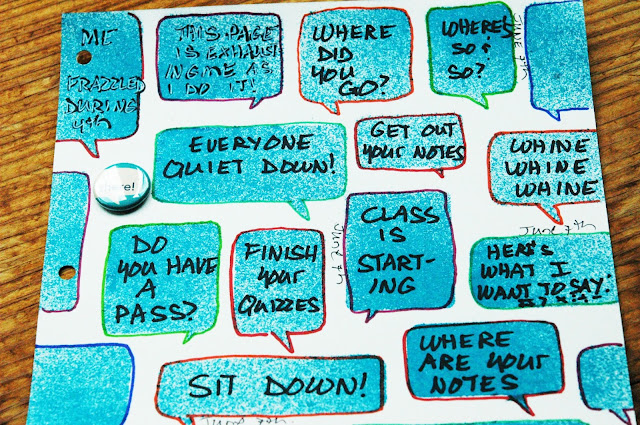 ME
FRAZZLED
DURING
4th
THIS PAGE
IS EXHAUST
ING ME AS
I DO IT!
WHERE
DID
YOU
GO?
WHERE'S
SO &
SO?
JUNE 7th
EVERYONE
QUIET DOWN!
GET OUT
YOUR NOTES
WHINE
WHINE
WHINE
there!
JUNE 7th
DO
YOU HAVE
A
PASS?
FINISH
YOUR
QUIZZES
CLASS
IS
START-
ING
June 7th
HERE'S
WHAT I
WANT TO SAY:
SIT DOWN!
WHERE
ARE YOUR
NOTES
June 7th